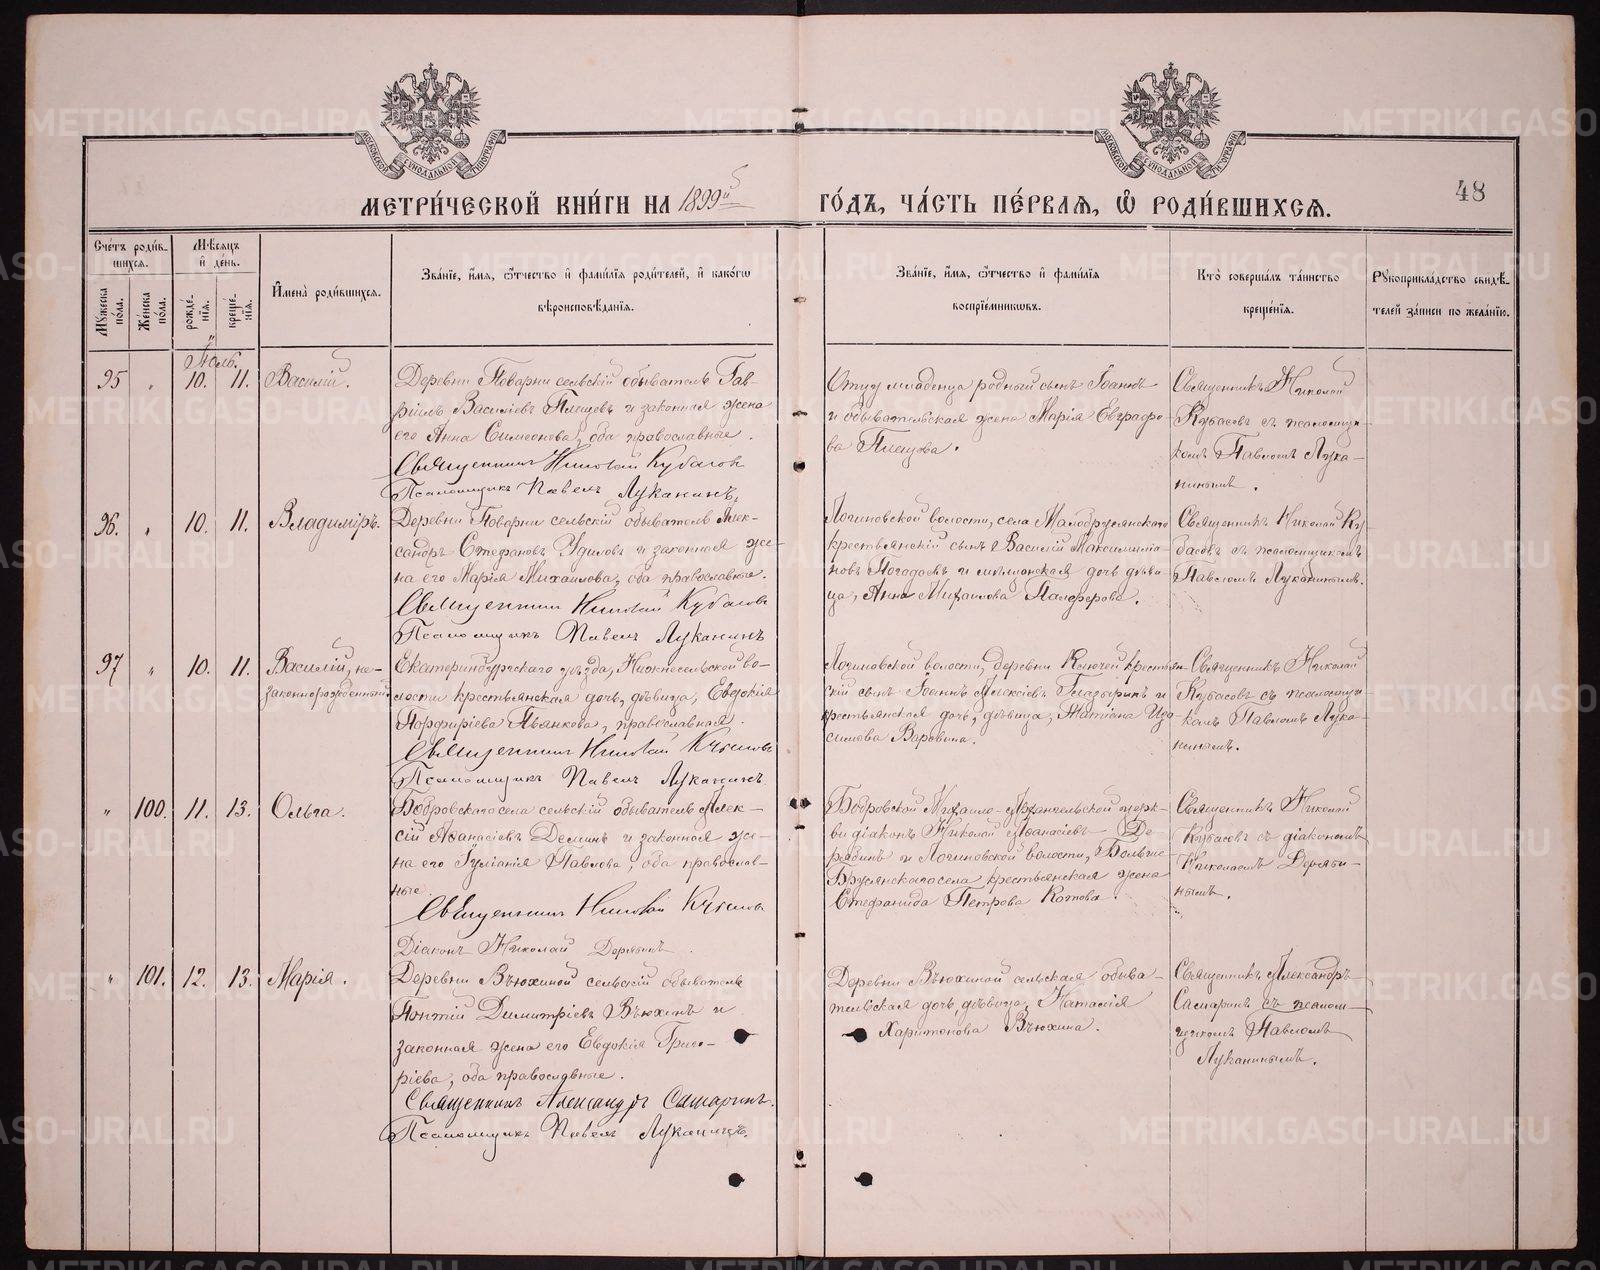 МЕТРИ́ЧЕСКОЙ КНИ́ГИ НА 1899й
ГО́ДЪ, ЧА́СТЬ ПЕ́РВАЯ, Ѽ РОДИ́ВШИХСЯ.
48
Сче́тъ роди́в-
шихся.
Мѣ́сяцъ
и҆ де́нь.
Мꙋ́жеска по́ла.
Же́нска по́ла.
рожде́-
нїѧ.
креще́-
нїѧ.
И҆мена̀ роди́вшихсѧ.
Зва́нїе, и҆́мѧ, ѻ҆́тчество и҆ фами́лїѧ роди́телей, и҆ како́гѡ
вѣроисповѣ́данїѧ.
Зва́нїе, и҆́мѧ, ѻ҆́тчество и҆ фами́лїѧ
воспрїе́мниковъ.
Кто̀ соверша́лъ та́инство
креще́нїѧ.
Рꙋкоприкла́дство свидѣ́-
телей за́писи по жела́нїю.
Іюль.
95 " 10. 11. Василій.
Деревни Поварни сельскій обыватель Гав-
ріилъ Василіевъ Плещевъ и законная жена
его Анна Симеонова, оба православные.
Священникъ Николай Кубасовъ
Псаломщикъ Павелъ Луканинъ.
Отцу младенца родный сынъ Іоаннъ
и обывательская жена Марія Евграфо-
ва Плещова.
Священникъ Николай
Кубасовъ съ псаломщи-
комъ Павломъ Лука-
нинымъ.
96. " 10. 11. Владиміръ.
Деревни Поварни сельскій обыватель Алек-
сандръ Стефановъ Удиловъ и законная же-
на его Марія Михаилова, оба православные.
Священникъ Николай Кубасовъ
Псаломщикъ Павелъ Луканинъ
Логиновской волости, села Малобрусянскаго
крестьянскій сынъ Василій Максимиліа-
новъ Погодаевъ и мѣщанская дочь дѣви-
ца, Анна Михаилова Панферова.
Священникъ Николай Ку-
басовъ съ псаломщикомъ
Павломъ Луканинымъ.
97 " 10. 11. Василій, не-
законнорожденный
Екатеринбургскаго уѣзда, Нижнесельской во-
лости крестьянская дочь, дѣвица, Евдокія
Порфиріева Пьянкова, православная.
Священникъ Николай Кубасовъ
Псаломщикъ Павелъ Луканинъ
Логиновской волости, деревни Ключей крестьян-
скій сынъ Іоаннъ Алексіевъ Глазыринъ и
крестьянская дочь, дѣвица, Татіана Изо-
симова Варовина.
Священникъ Николай
Кубасовъ съ псаломщи-
комъ Павломъ Лука-
нинымъ.
" 100. 11. 13. Ольга.
Бобровскаго села сельскій обыватель Алек-
сій Аѳанасіевъ Деминъ и законная же-
на его Іуліанія Павлова, оба православ-
ные.
Священникъ Николай Кубасовъ
Діаконъ Николай Дерябинъ
Бобровской Михаило-Архангельской церк-
ви діаконъ Николай Аѳанасіевъ Де-
рябинъ и Логиновской волости, Больше-
Брусянскаго села крестьянская жена
Стефанида Петрова Котова.
Священникъ Николай
Кубасовъ съ діакономъ
Николаемъ Деряби-
нымъ.
" 101. 12. 13. Марія.
Деревни Вьюхиной сельскій обыватель
Понтій Димитріевъ Вьюхинъ и
законная жена его Евдокія Григо-
ріева, оба православные.
Священникъ Александръ Самаринъ.
Псаломщикъ Павелъ Луканинъ.
Деревни Вьюхиной сельская обыва-
тельская дочь, дѣвица, Наталія
Харитонова Вьюхина.
Священникъ Александръ
Самаринъ съ псалом-
щикомъ Павломъ
Луканинымъ.
METRIKI.GASO-URAL.RU